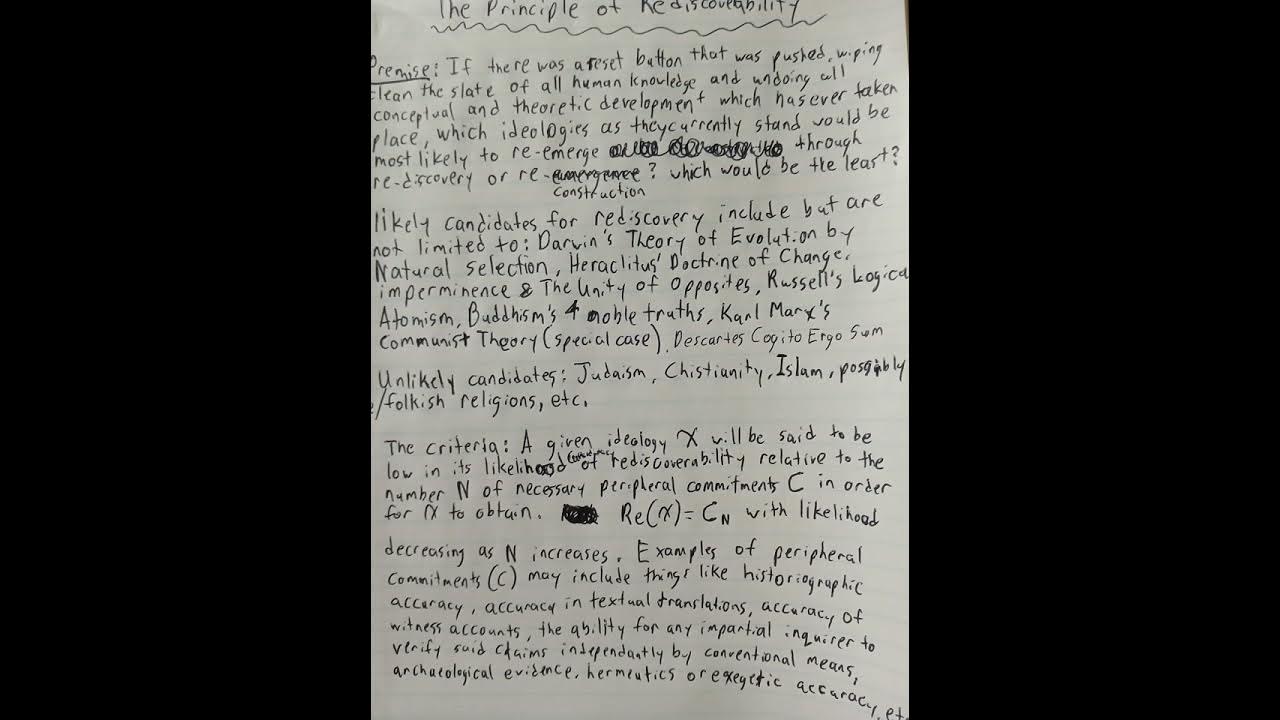 The Principle of Rediscoverability
Premise: If there was a reset button that was pushed, wiping
clean the slate of all human knowledge and undoing all
conceptual and theoretic development which has ever taken
place, which ideologies as they currently stand would be
most likely to re-emerge through
re-discovery or re-emergence? which would be the least?
construction
likely candidates for rediscovery include but are
not limited to: Darwin's Theory of Evolution by
Natural selection, Heraclitus' Doctrine of Change,
imperminence & The Unity of Opposites, Russell's Logical
Atomism, Buddhism's 4 noble truths, Karl Marx's
Communist Theory (special case), Descartes Cogito Ergo Sum
Unlikely candidates: Judaism, Chistianity, Islam, possibly
/folkish religions, etc.
The criteria: A given ideology X will be said to be
low in its likelihood of rediscoverability relative to the
number N of necessary peripheral commitments C in order
for X to obtain. Re(X)= C_N with likelihood
decreasing as N increases. Examples of peripheral
commitments (C) may include things like historiographic
accuracy, accuracy in textual translations, accuracy of
witness accounts, the ability for any impartial inquirer to
verify said claims independantly by conventional means,
archaeological evidence, hermeutics or exegetic accuracy, etc